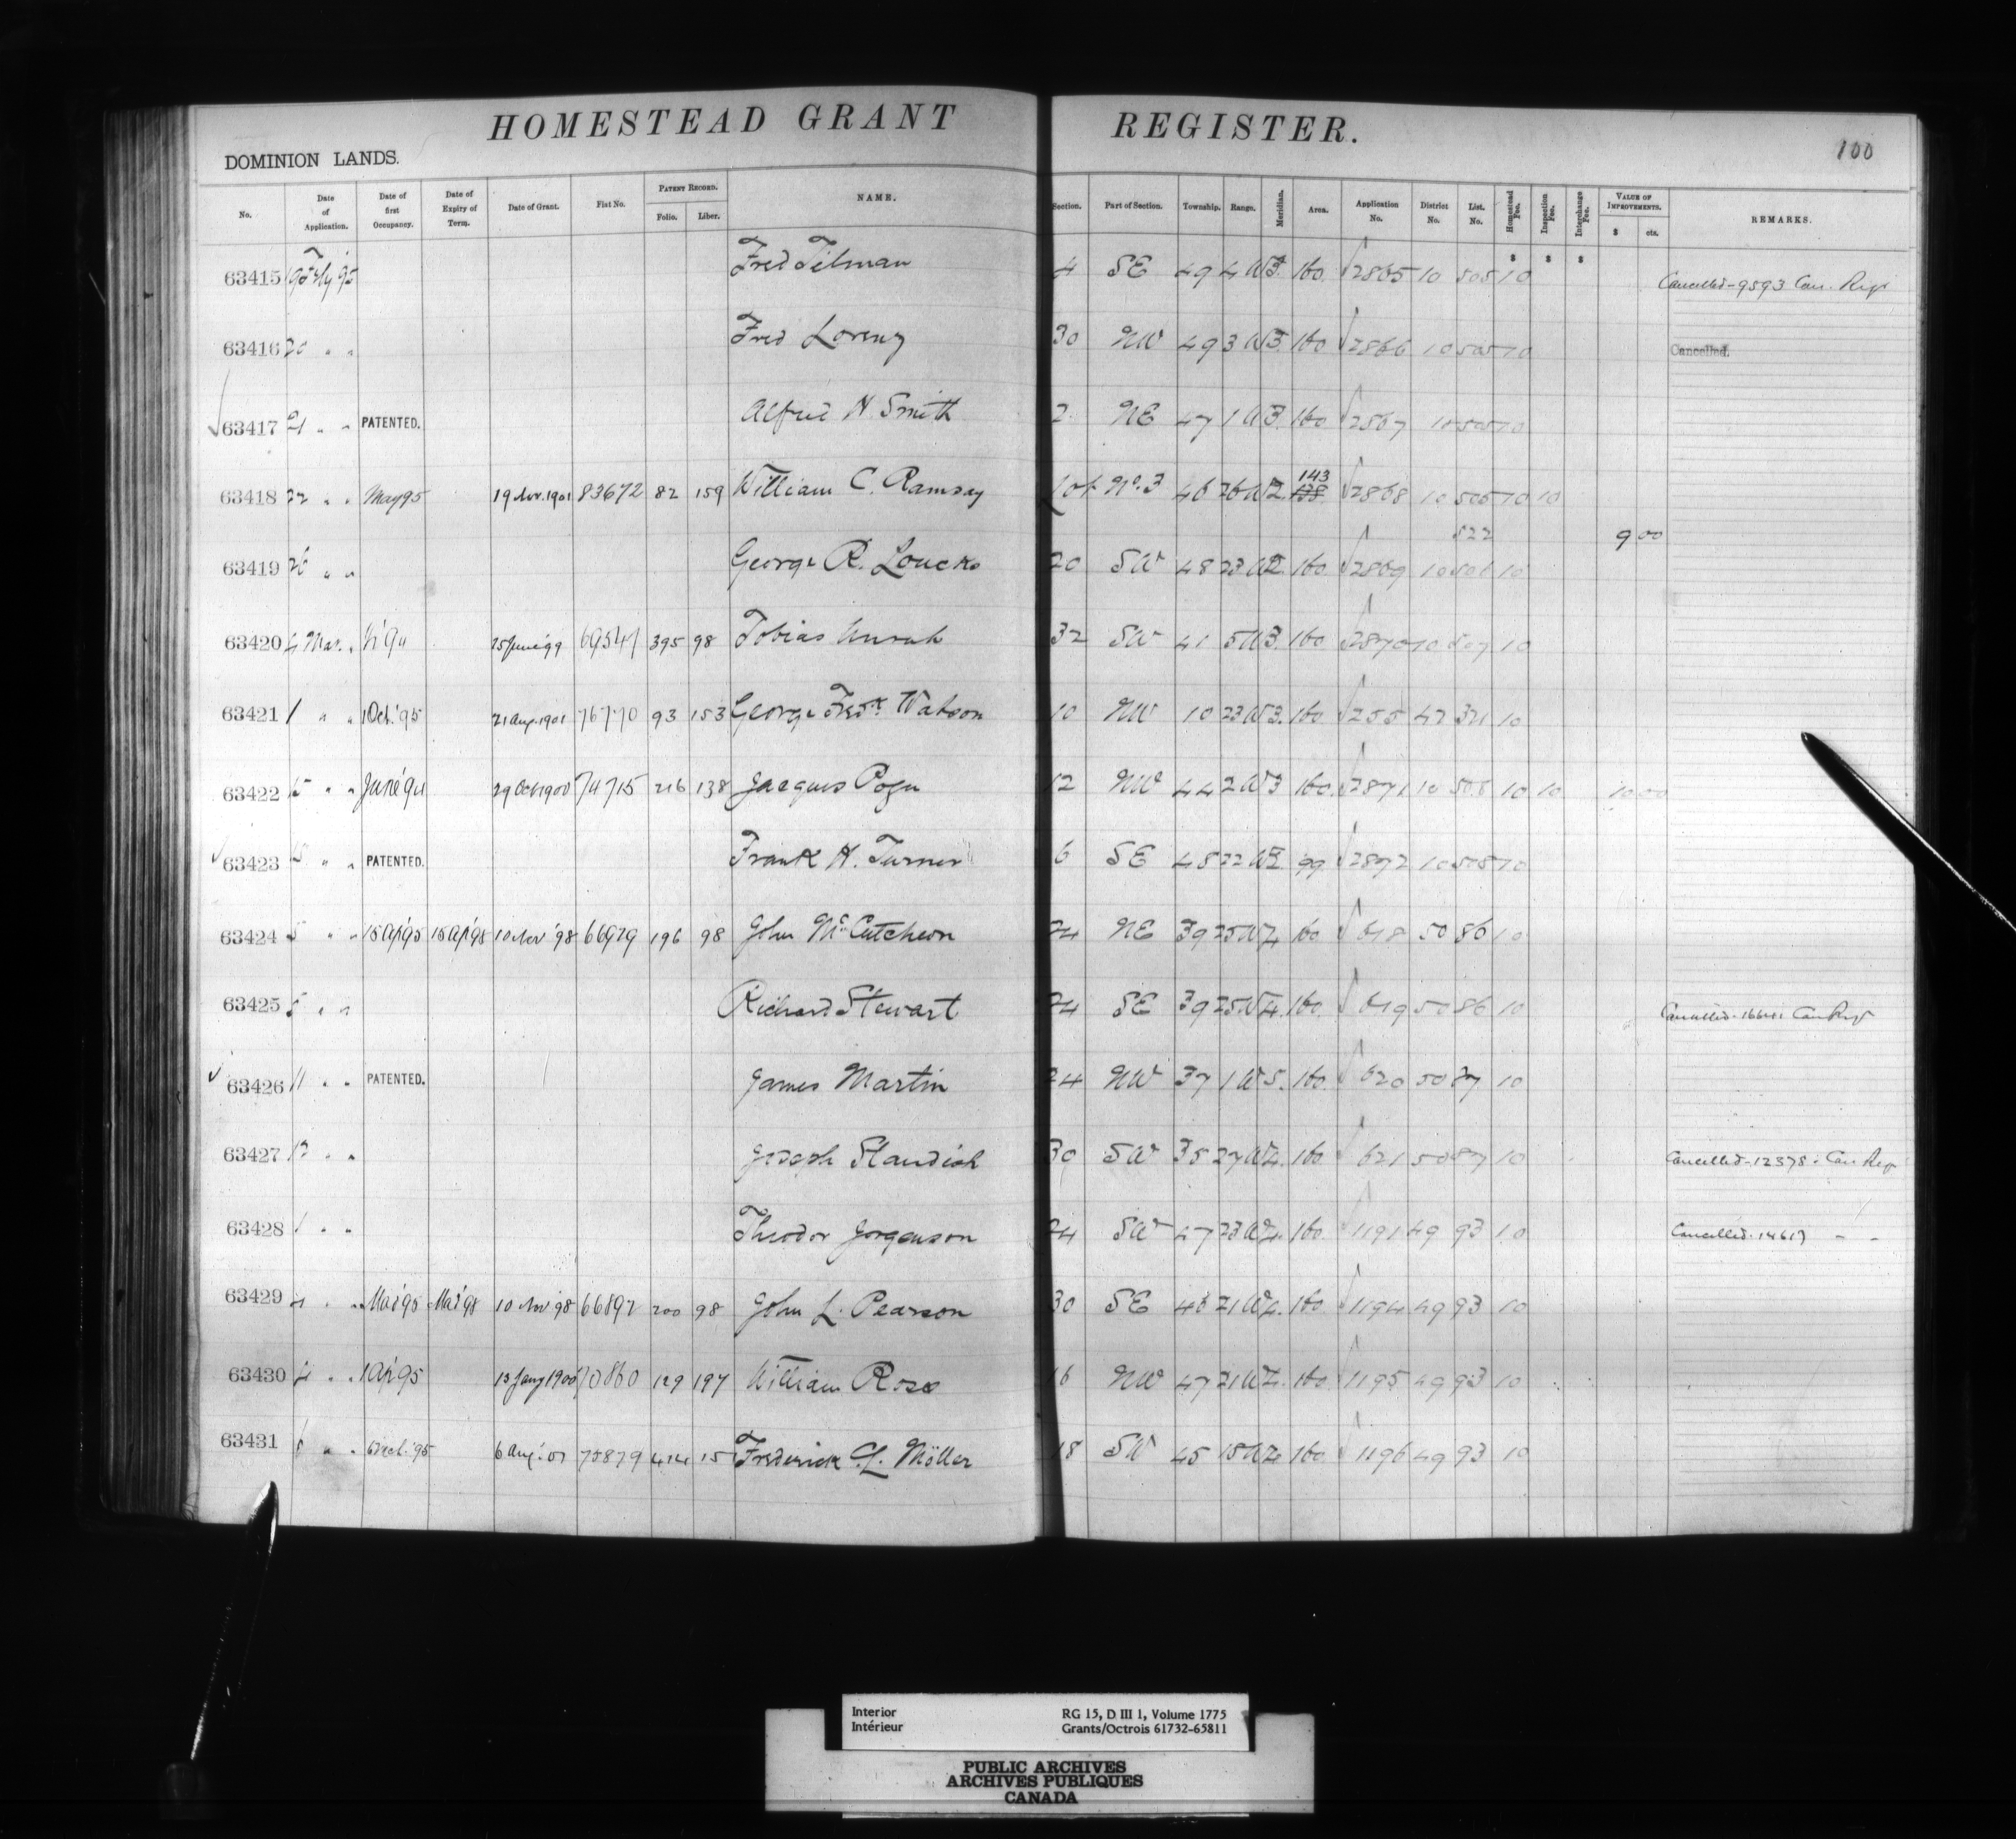 HOMESTEAD GRANT REGISTER.
100
DOMINION LANDS.
No. Date of Application. Date of first Occupancy. Date of Expiry of Term. Date of Grant. Fiat No. PATENT RECORD. Folio. Liber. NAME. Section. Part of Section. Township. Range. Meridian. Area. Application No. District No. List. No. Homestead Fee. Inspection Fee. Interchange Fee. VALUE OF IMPROVEMENTS. $ cts. REMARKS.
$ $ $
63415 Fred Tilman 4 SE 49 4 W3. 160. 2865 10 505 10 Cancelled-9593 Can. Regr
63416 20 " " Fred Lorenz 30 NW 49 3 W3. 160 2866 10 505 10 Cancelled.
63417 21 " " PATENTED. Alfred H. Smith 2 NE 47 1 W3. 160 2867 10 505 10
63418 22 " " May 95 19 Nov. 1901 83672 82 159 William C. Ramsay Lot No. 3 46 26 W2. 143 138 2868 10 505 10 10
522 9 00
63419 26 " " George R. Loucks 20 SW 48 23 W2. 160 2869 10 506 10
63420 4 Mar. " 25 June '99 69547 395 98 Tobias Unruh 32 SW 41 5 W3. 160 2870 10 507 10
63421 1 " " 1 Oct. '95 21 Aug. 1901 76770 93 153 George Fredk. Watson 10 NW 10 23 W3. 160 255 42 321 10
63422 5 " " June '94 29 Oct 1900 74715 216 138 Jacques 12 NW 44 2 W3 160. 2871 10 508 10 10 10 00
63423 5 " " PATENTED. Frank H. Turner 6 SE 48 22 W2. 99 2872 10 508 10
63424 5 " " 15 Ap '95 15 Ap '98 10 Nov '98 66929 196 98 John McCutcheon 24 NE 39 25 W4. 160 618 50 86 10
63425 5 " " Richard Stewart 24 SE 39 25 W4. 160. 619 50 86 10 Cancelled Can Regr
63426 11 " " PATENTED. James Martin 24 NW 37 1 W5. 160. 620 50 87 10
63427 12 " " Joseph Standish 30 SW 35 27 W4. 160 621 50 87 10 Cancelled-12378-Can. Regr
63428 1 " " Theodor Jorgenson 24 SW 47 23 W4. 160. 1191 49 93 10 Cancelled. 14617 " "
63429 4 " " Mar '95 Mar '98 10 Nov '98 66892 200 98 John L. Pearson 30 SE 46 21 W4. 160. 1194 49 93 10
63430 4 " " 1 Ap '95 13 Jany 1900 70860 129 197 William Ross 16 NW 47 21 W4. 160. 1195 49 93 10
63431 " " 6 Aug. '01 75879 414 15 Frederick C. L. Möller 18 SW 45 15 W4. 160. 1196 49 93 10
Interior RG 15, D III 1, Volume 1775
Intérieur Grants/Octrois 61732-65811
PUBLIC ARCHIVES
ARCHIVES PUBLIQUES
CANADA